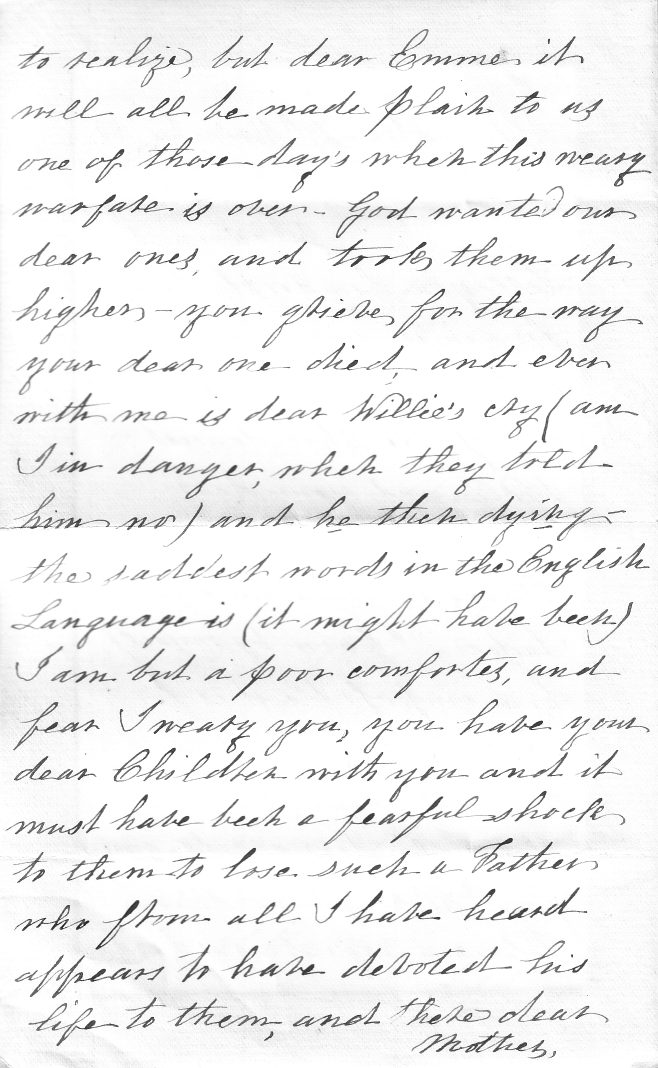 to realize, but dear Emme it
will all be made plain to us
one of those day's when this weary
warfare is over - God wanted our
dear ones, and took them up
higher - you grieve for the way
your dear one died, and ever
with me is dear Willie's cry (am
I in danger, when they told
him no) and he then dying -
the saddest words in the English
Language is (it might have been)
I am but a poor comforter, and
fear I weary you, you have your
dear Children with you and it
must have been a fearful shock
to them to lose such a Father
who from all I have heard
appears to have devoted his
life to them, and there dear
Mother.